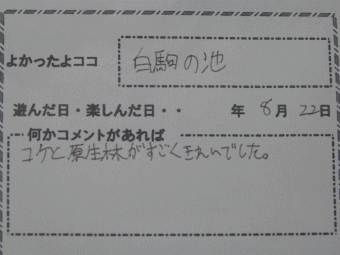 よかったよココ 白駒の池
遊んだ日・楽しんだ日・・ 年 8月 22日
何かコメントがあれば
コケと原生林がすごくきれいでした。